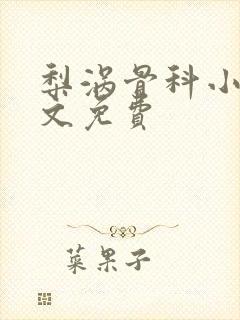 梨涡骨科小
文免費
菜果子